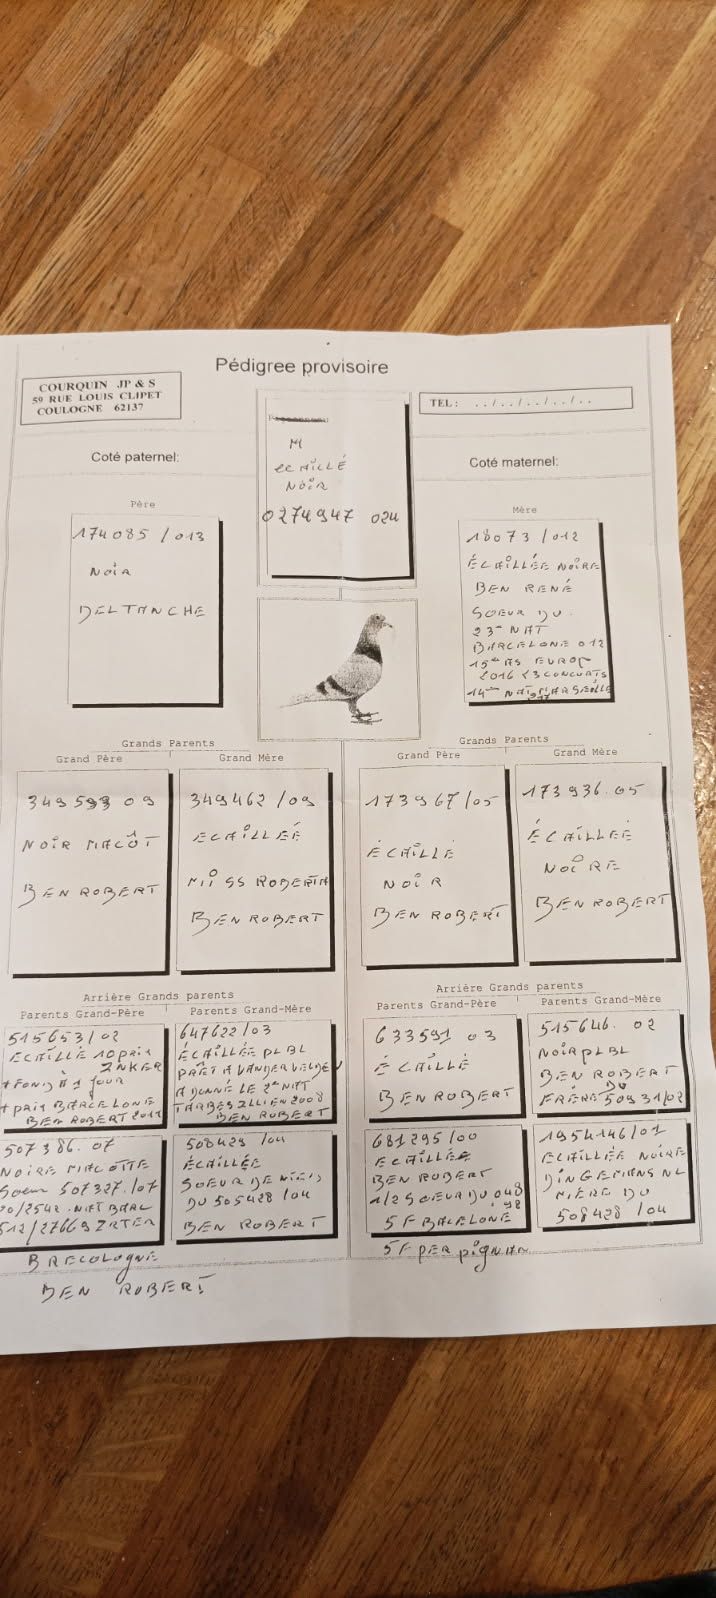 Pédigree provisoire
COURQUIN JP & S
59 RUE LOUIS CLIPET
COULOGNE 62137
TEL : ../../../../..
M
ECAILLÉ
NOIR
0274947 024
Coté paternel:
Coté maternel:
Père
174085/013
NOIR
DELTANCHE
Mère
18073/012
ÉCAILLÉE NOIRE
BEN RENÉ
SOEUR DU
23e NAT
BARCELONE 012
15em AS EUROP
2016 23 CONCOURTS
14em NAT MARSEILLE
Grands Parents
Grand Père
Grand Mère
349593 09
NOIR MACÔT
BEN ROBERT
349462/09
ECAILLÉE
MISS ROBERTA
BEN ROBERT
Grands Parents
Grand Père
Grand Mère
173967/05
ÉCAILLÉ
NOIR
BEN ROBERT
173936.05
ÉCAILLÉE
NOIRE
BEN ROBERT
Arrière Grands parents
Parents Grand-Père
Parents Grand-Mère
515653/02
ECAILLÉ 10 PRIX
+ FOND À 1 JOUR
+ PRIX BARCELONE
BEN ROBERT
647622/03
ÉCAILLÉE PLBL
PRÊT A VANDERVELDEN
A DONNÉ LE 2e NAT
TARBES ZLLIEN 2008
BEN ROBERT
507386.07
NOIRE MACOTTE
SOEUR 507327./07
BRECOLOGNE
BEN ROBERT
508429/04
ÉCAILLÉE
SOEUR DE
DU 505428/04
BEN ROBERT
Arrière Grands parents
Parents Grand-Père
Parents Grand-Mère
633591 03
ÉCAILLÉ
BEN ROBERT
515646. 02
NOIR PLBL
BEN ROBERT
FRÈRE DU 50931/02
681295/00
ECAILLÉE
BEN ROBERT
1/2 SOEUR DU 048
98
5F BACELONE
5F PERPIGNAN
1954146/01
ECAILLÉE NOIRE
DINGEMANS NL
MÈRE DU
508428/04